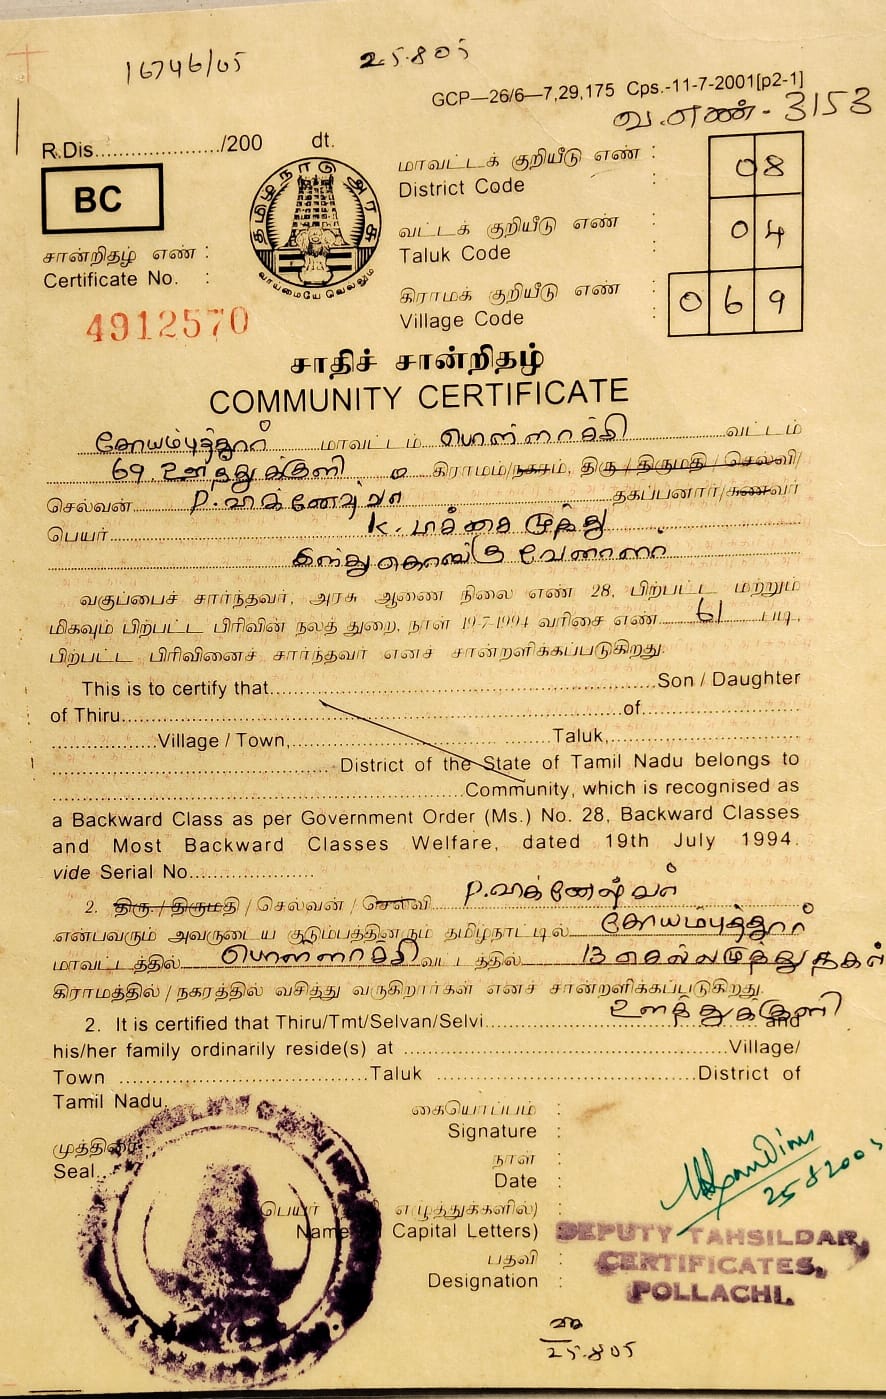 16746/05 25.8.05
GCP—26/6—7,29,175 Cps.-11-7-2001[p2-1]
வ.எண் - 3153
R.Dis...................../200 dt.
BC
தமிழ்நாடு அரசு
வாய்மையே வெல்லும்
மாவட்டக் குறியீடு எண் : 08
District Code :
வட்டக் குறியீடு எண் : 04
Taluk Code :
கிராமக் குறியீடு எண் : 069
Village Code :
சான்றிதழ் எண் :
Certificate No. :
4912570
சாதிச் சான்றிதழ்
COMMUNITY CERTIFICATE
கோயம்புத்தூர் மாவட்டம் பொள்ளாச்சி வட்டம்
69. ஊத்துக்குளி கிராமம்/நகரம், திரு/திருமதி/செல்வி/
செல்வன் P. தகப்பனார்/கணவர்
பெயர் K. பச்சை முத்து
இந்து கொங்கு வேளாளர்
வகுப்பைச் சார்ந்தவர், அரசு ஆணை நிலை எண் 28, பிற்பட்ட மற்றும்
மிகவும் பிற்பட்ட பிரிவின் நலத் துறை, நாள் 19-7-1994 வரிசை எண் 61 படி,
பிற்பட்ட பிரிவினைச் சார்ந்தவர் எனச் சான்றளிக்கப்படுகிறது.
This is to certify that.......................................................Son / Daughter
of Thiru.......................................................................of............................
.................Village / Town,..........................................Taluk,............................
............................................. District of the State of Tamil Nadu belongs to
..................................................................Community, which is recognised as
a Backward Class as per Government Order (Ms.) No. 28, Backward Classes
and Most Backward Classes Welfare, dated 19th July 1994.
vide Serial No....................
2. திரு./திருமதி/செல்வன்/செல்வி P.
என்பவரும் அவருடைய குடும்பத்தினரும் தமிழ்நாட்டில் கோயம்புத்தூர்
மாவட்டத்தில் பொள்ளாச்சி வட்டத்தில் 13 செல்லமுத்து நகர்
கிராமத்தில்/நகரத்தில் வசித்து வருகிறார்கள் எனச் சான்றளிக்கப்படுகிறது.
ஊத்துக்குளி
2. It is certified that Thiru/Tmt/Selvan/Selvi............................................ and
his/her family ordinarily reside(s) at ....................................................Village/
Town .......................................Taluk .........................................District of
Tamil Nadu.
கையொப்பம் :
Signature :
முத்திரை
Seal
நாள் :
Date : 25 8 2005
பெயர் எழுத்துக்களில்)
Name Capital Letters)
பதவி :
Designation :
DEPUTY TAHSILDAR,
CERTIFICATES,
POLLACHI.
25.8.05